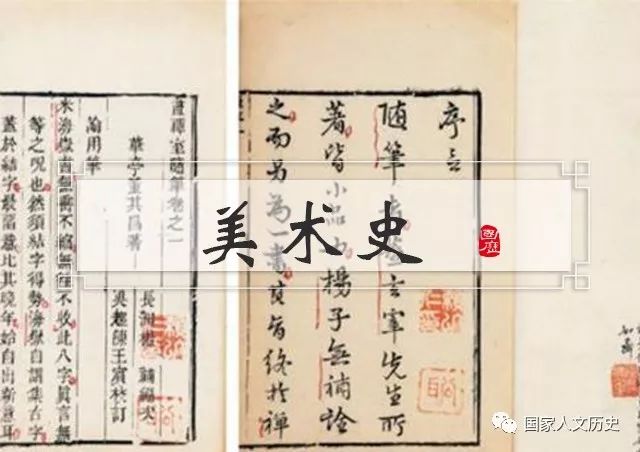 序言
隨筆宰先生所
著皆小品楊子無補詮
之而另為一書旨終於禪
畫禪室隨筆卷之一
華亭董其昌著
長洲
論用筆
米海嶽書無垂不縮無往不收此八字眞言無
等之咒也然須結字得勢海嶽自謂集古字
蓋於結字最留意比其晚年始自出新意耳
美术史
国家人文历史